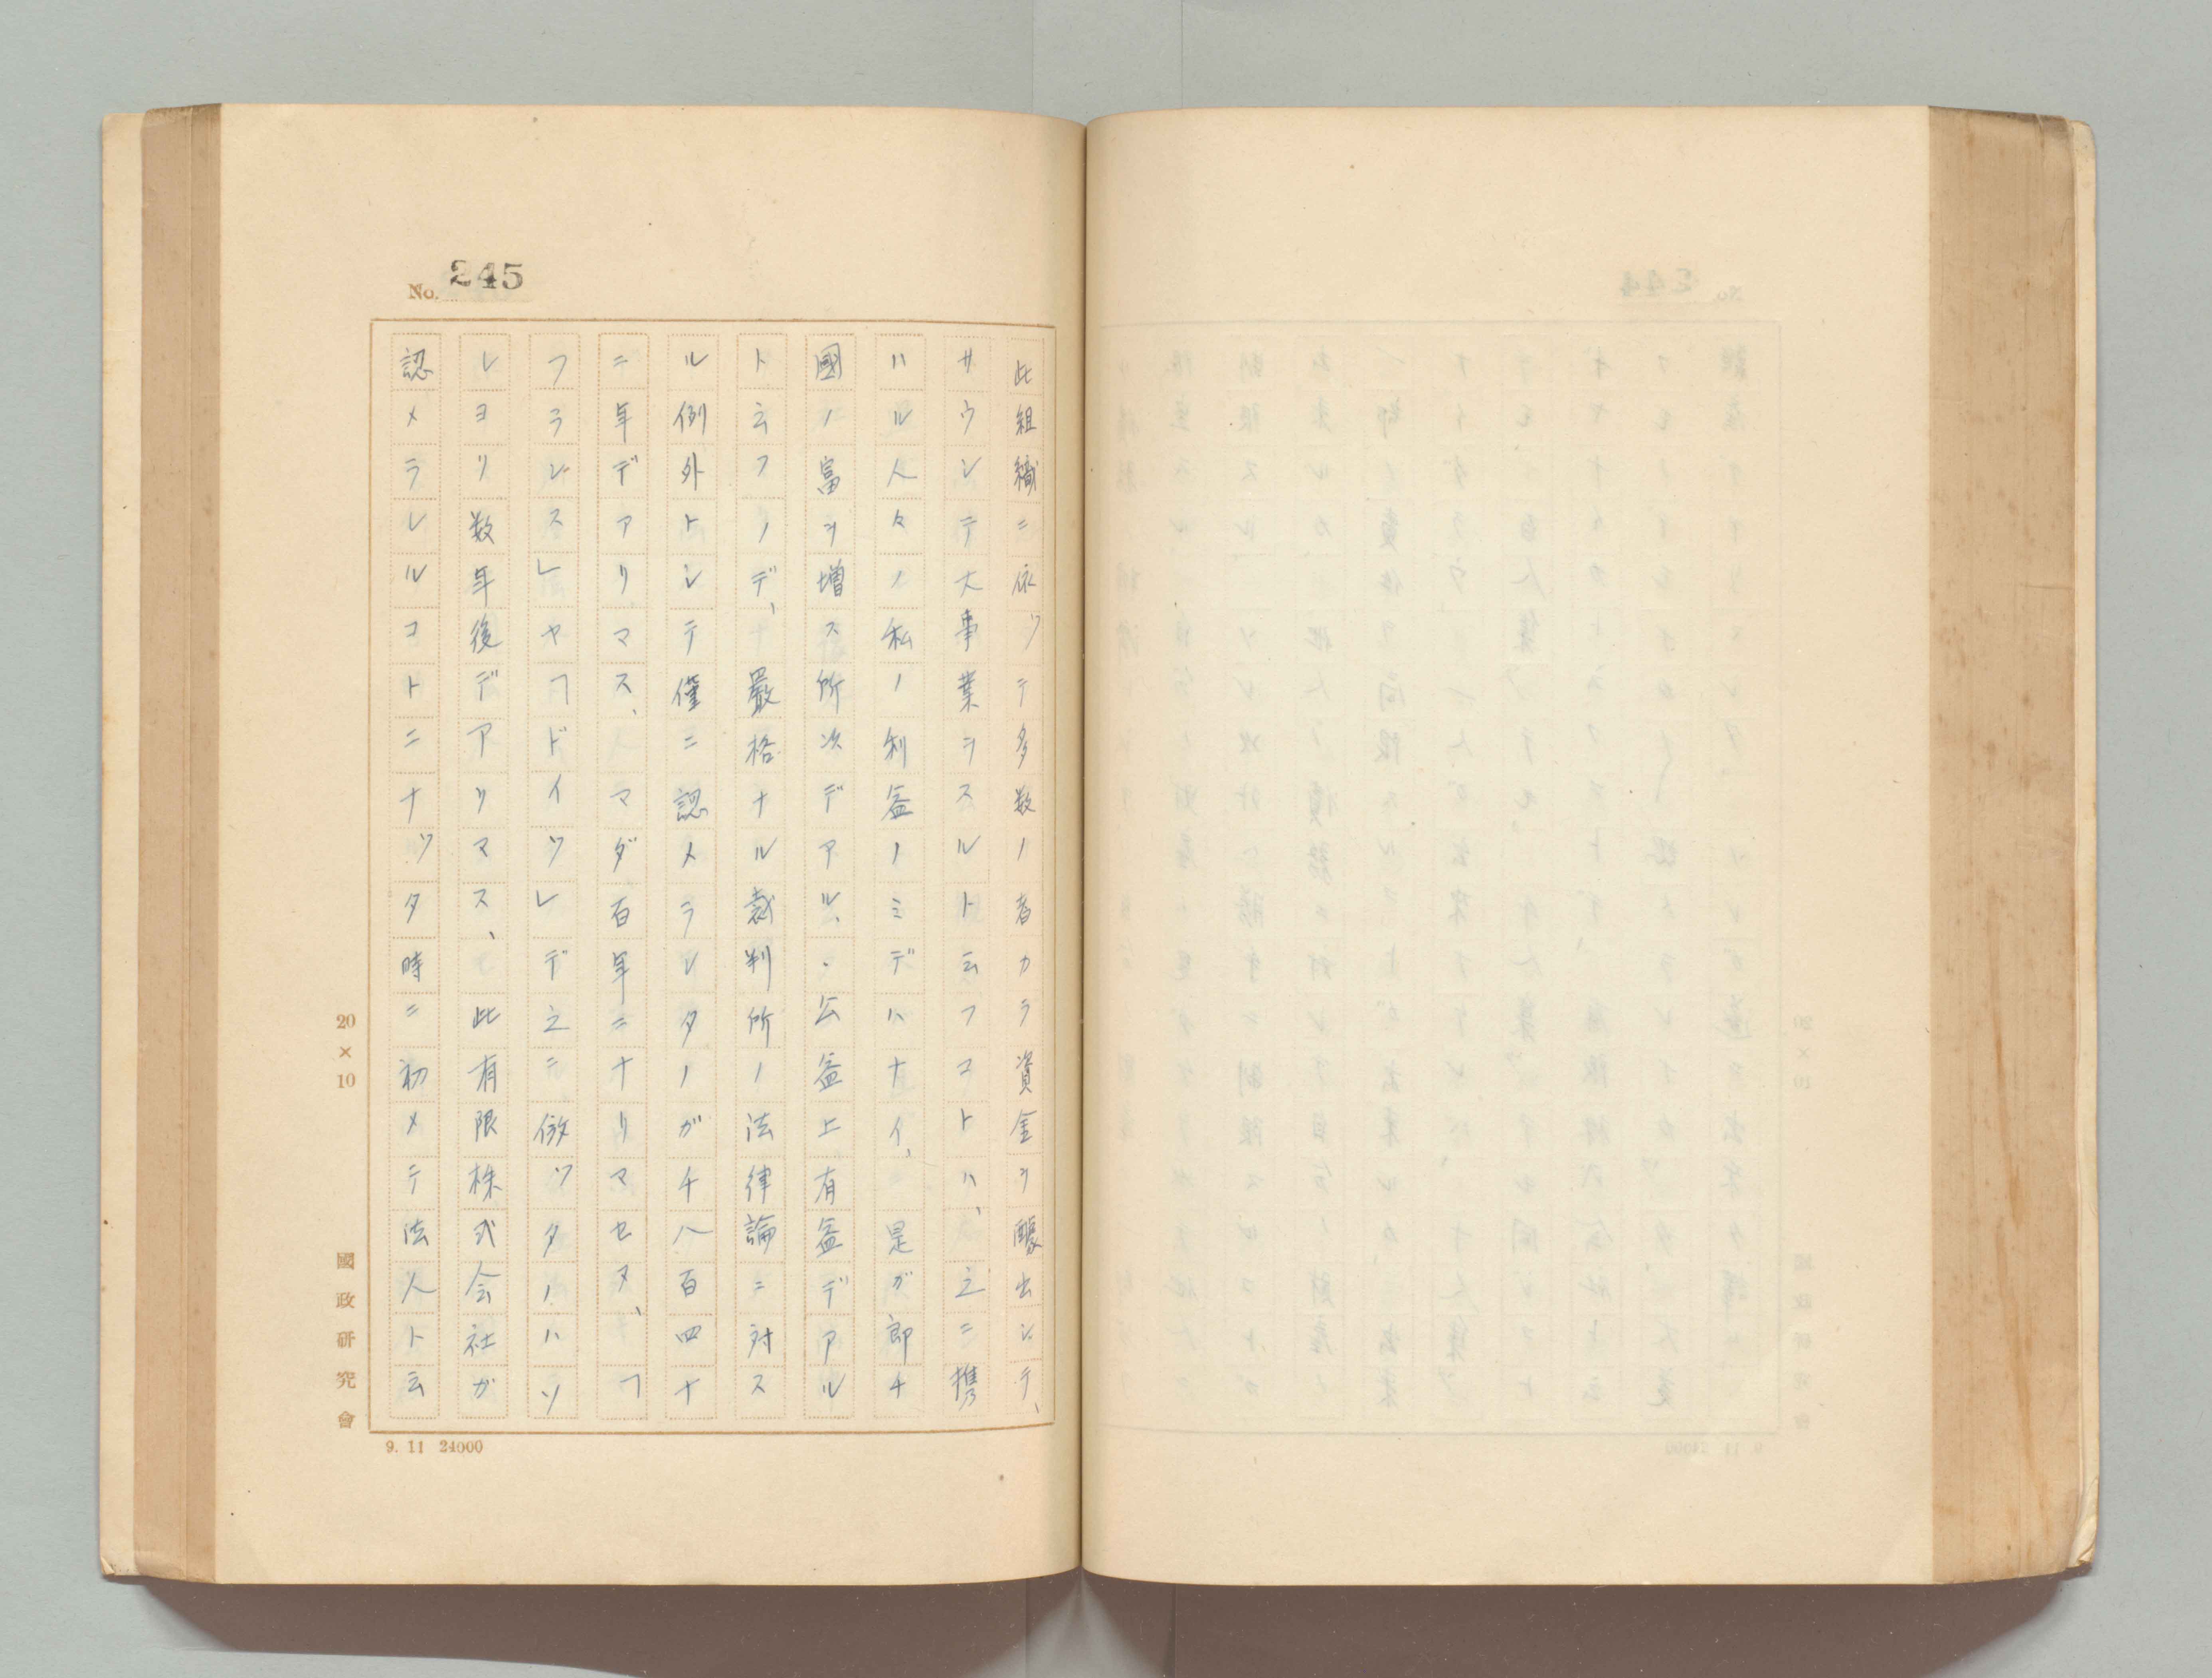 No. 245
此組織ニ依ツテ多数ノ者カラ資金ヲ醵出シテ、
サウシテ大事業ヲスルト云フコトハ、之ニ携
ハル人々ノ私ノ利益ノミデハナイ、是ガ即チ
國ノ富ヲ増ス所次デアル、公益上有益デアル
ト云フノデ、嚴格ナル裁判所ノ法律論ニ対ス
ル例外トシテ僅ニ認メラレタノガ千八百四十
ニ年デアリマス、マダ百年ニナリマセヌ、「
フランス」ヤ「ドイツ」デ之ニ倣ツタノハソ
レヨリ数年後デアリマス、此有限株式会社ガ
認メラレルコトニナツタ時ニ初メテ法人ト云
20×10
國政研究會
9. 11 24000